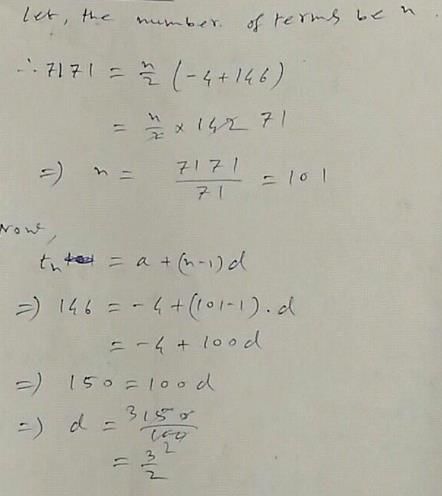 Let, the number of terms be n
∴ 7171 = n/2 (-4+146)
= n/2 × 142 71
=) n = 7171/71 = 101
Now,
tn = a + (n-1)d
=) 146 = -4+(101-1).d
= -4 + 100d
=) 150 = 100d
=) d = 3 150/100 2
= 3/2